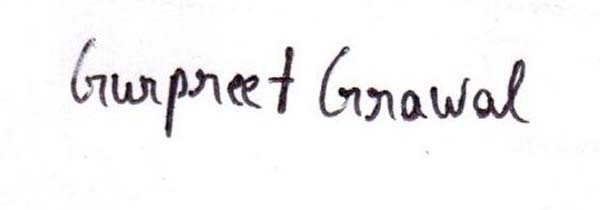 Gurpreet Grawal